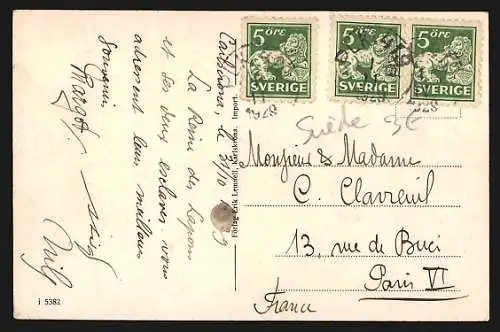 5 ÖRE
SVERIGE
5 ÖRE
SVERIGE
5 ÖRE
SVERIGE
Suède 3E
Monsieur & Madame
C. Clavreuil
13, rue de Buci
Paris VI
France
le 31/10
La Reine des Lapons
et ses deux esclaves vous
adressent leurs meilleurs
souvenirs
Margot
Förlag Erik Karlskrona. Import.
i 5382